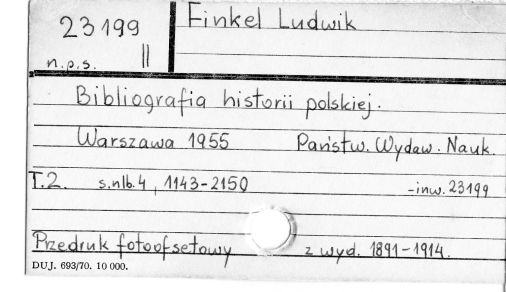 23199 Finkel Ludwik
n.p.s. II
Bibliografia historii polskiej.
Warszawa 1955 Państw. Wydaw. Nauk.
T.2. s.nlb.4, 1143-2150 -inw. 23199
Przedruk fotoofsetowy z wyd. 1891-1914.
DUJ. 693/70. 10 000.